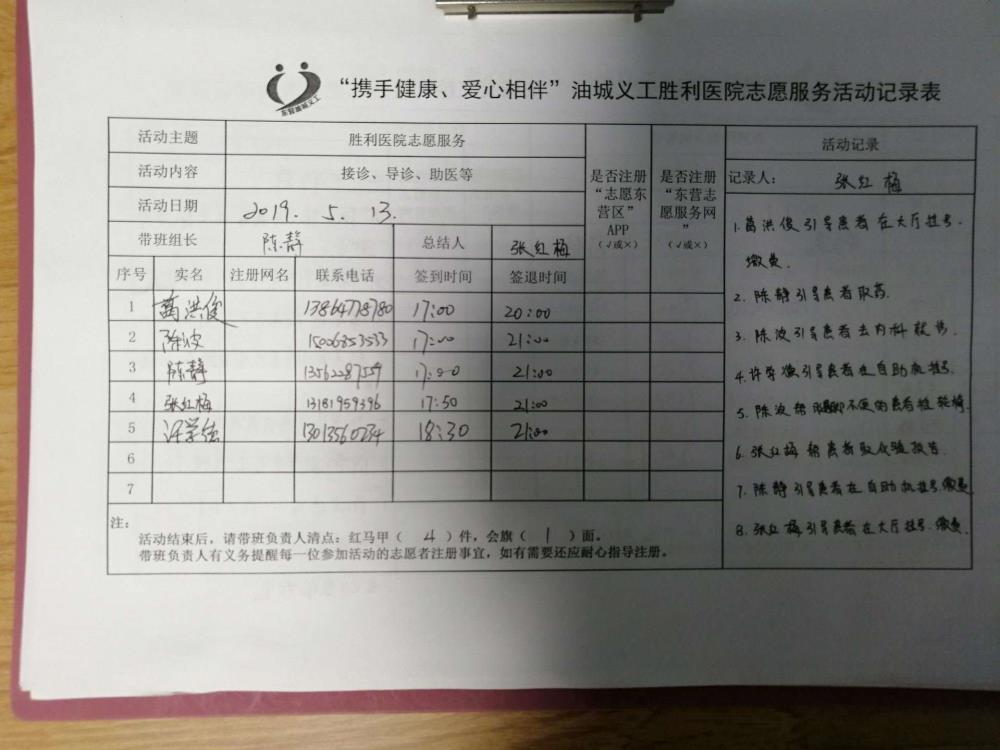 “携手健康、爱心相伴”油城义工胜利医院志愿服务活动记录表
东营油城义工
活动主题 胜利医院志愿服务
活动内容 接诊、导诊、助医等
活动日期 2019. 5. 13.
带班组长 陈静 总结人 张红梅
是否注册“志愿东营区”APP（√或×）
是否注册“东营志愿服务网”（√或×）
序号 实名 注册网名 联系电话 签到时间 签退时间
1 苗洪俊 13864778780 17:00 20:00
2 陈波 15006853533 17:00 21:00
3 陈静 13562287559 17:00 21:00
4 张红梅 13181959396 17:50 21:00
5 许学 13013560234 18:30 21:00
6
7
注：
活动结束后，请带班负责人清点：红马甲（ 4 ）件，会旗（ 1 ）面。
带班负责人有义务提醒每一位参加活动的志愿者注册事宜，如有需要还应耐心指导注册。
活动记录
记录人： 张红梅
1.苗洪俊引导患者在大厅挂号.
缴费.
2. 陈静引导患者取药.
3. 陈波引导患者去内科就诊.
4.许学 引导患者在自助机挂号.
5. 陈波帮 不便的患者租轮椅.
6. 张红梅帮患者取化验报告.
7. 陈静引导患者在自助机挂号.缴费
8. 张红梅引导患者在大厅挂号.缴费.